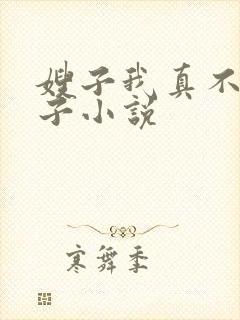 嫂子我真不
子小说
寒舞季